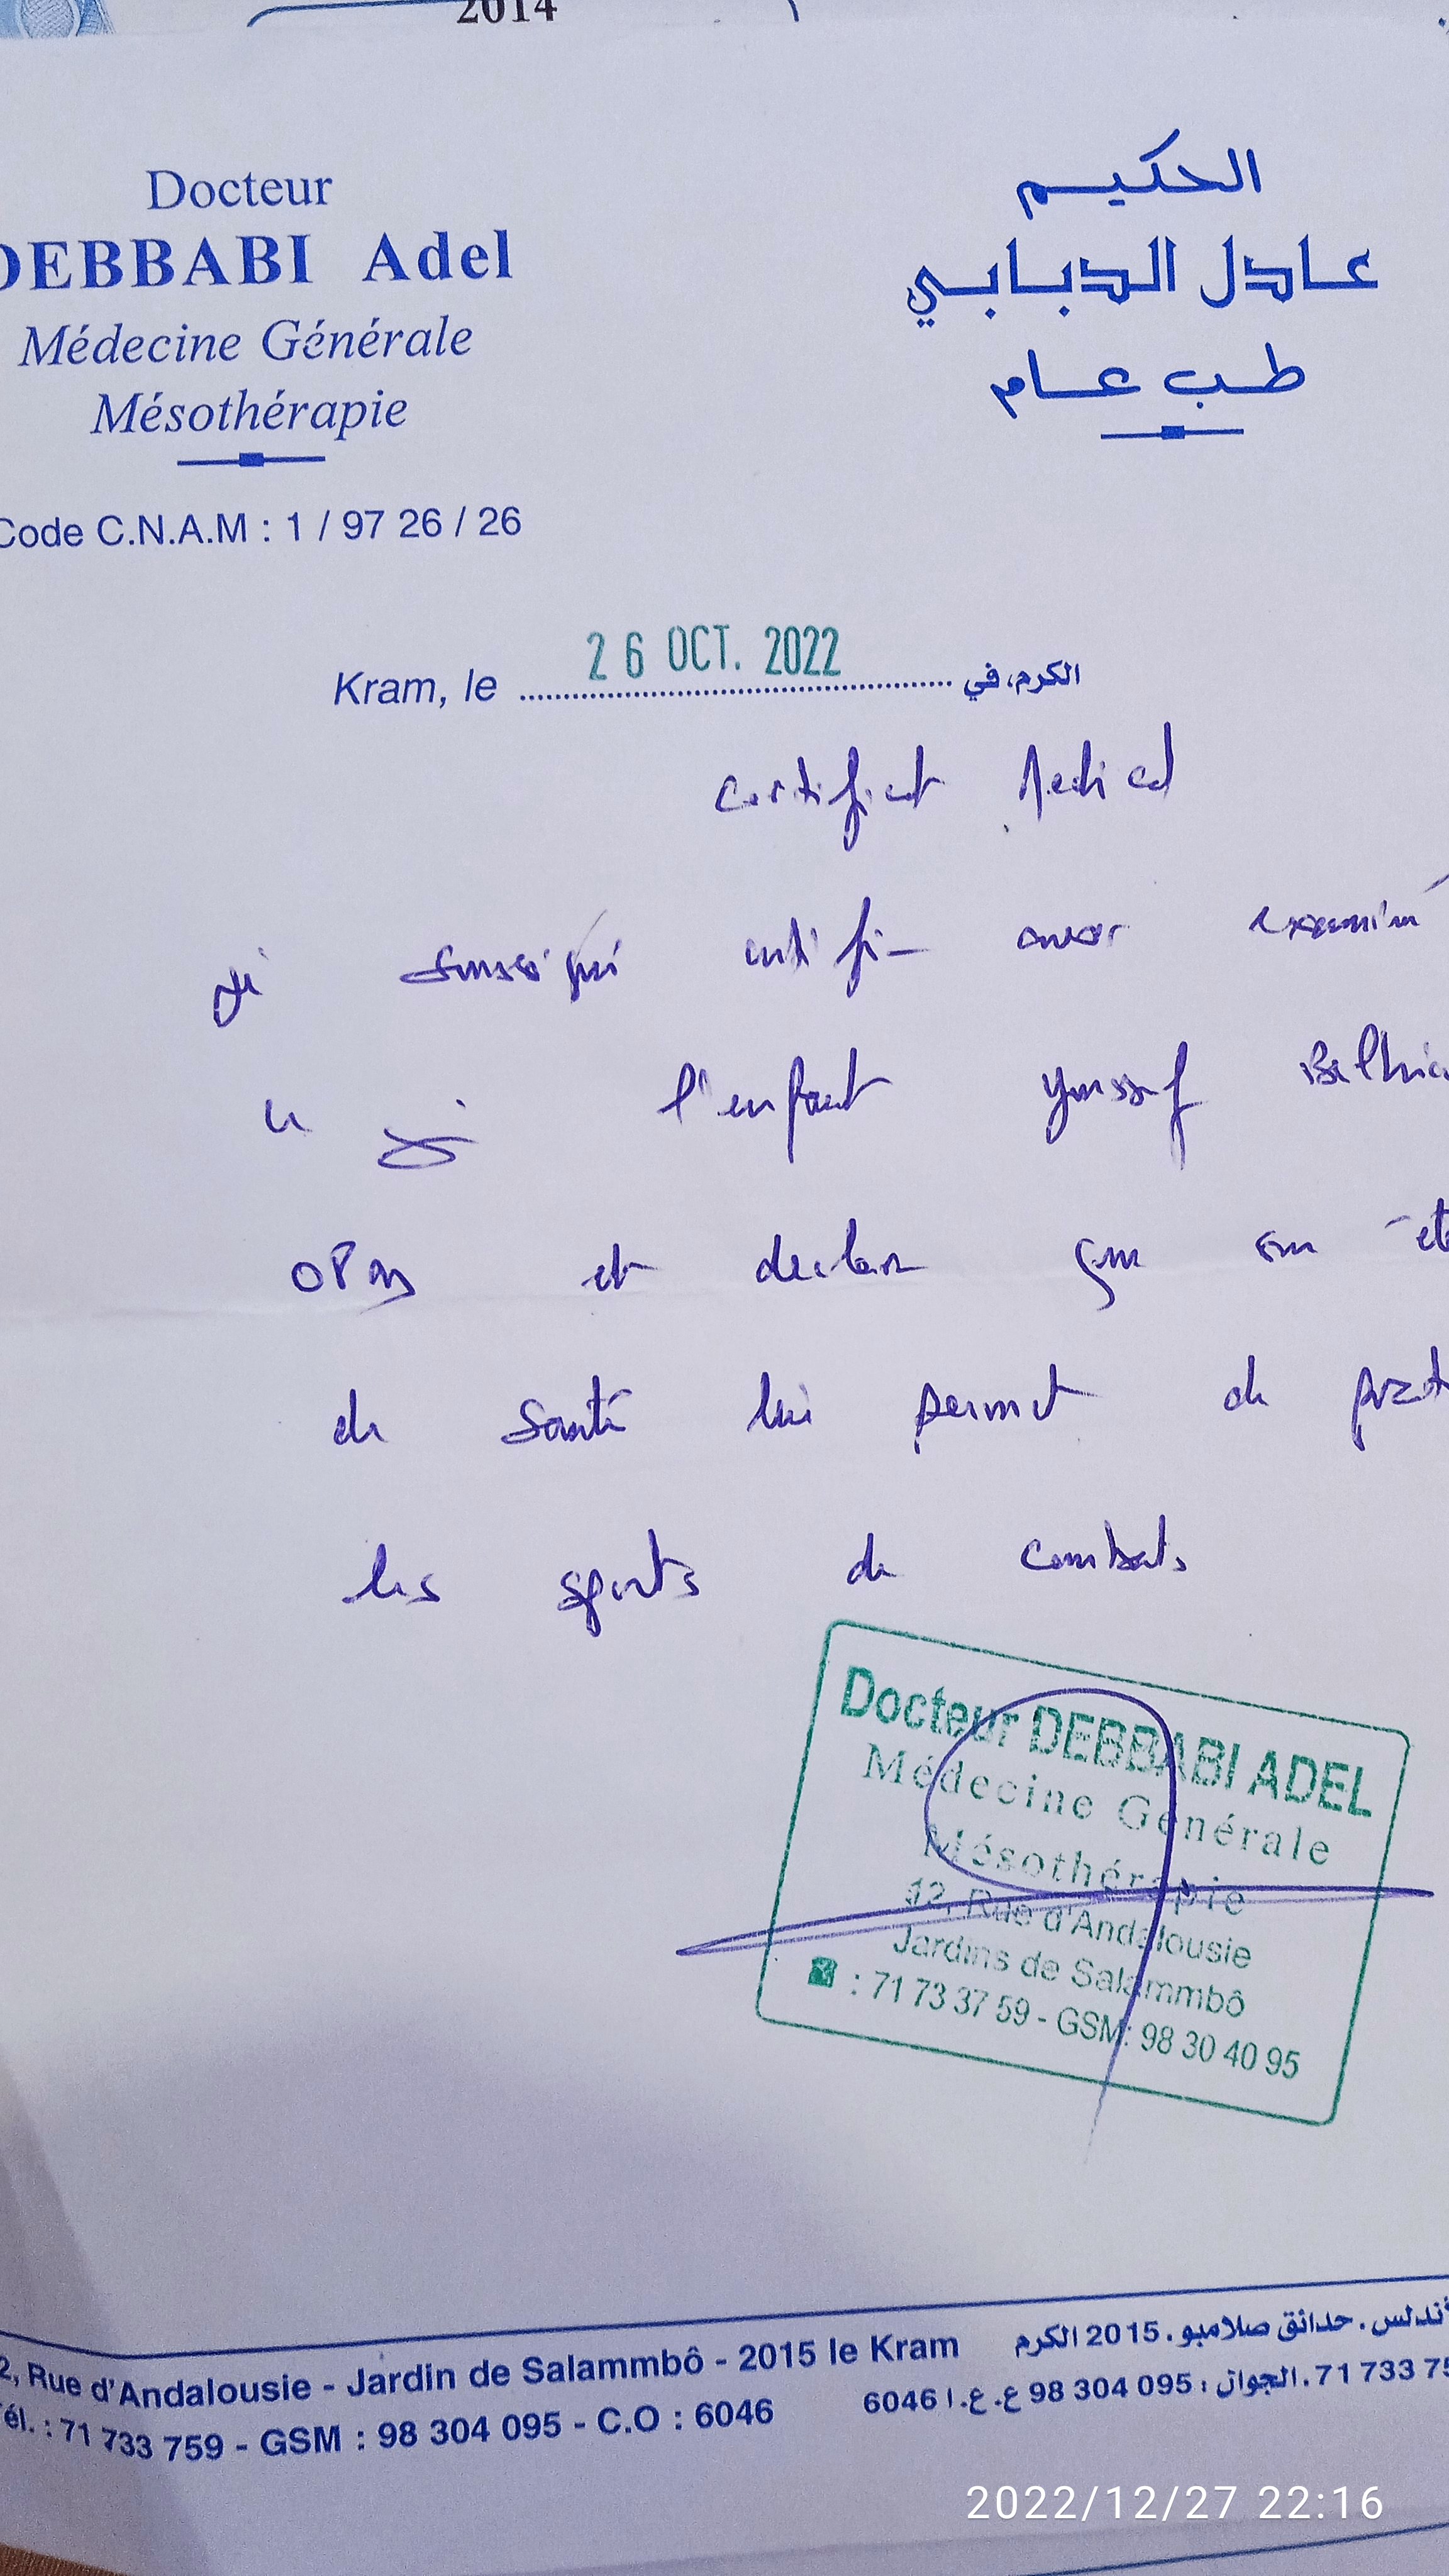 2014
Docteur
DEBBABI Adel
Médecine Générale
Mésothérapie
Code C.N.A.M : 1 / 97 26 / 26
الحكيم
عادل الدبابي
طب عام
Kram, le 26 OCT. 2022 الكرم، في
Certificat Medical
Je soussigné certifie avoir examiné
ce jour l'enfant Youssef
et declare que son ét
de santé lui permet de prat
les sports de combats
Docteur DEBBABI ADEL
Médecine Générale
Mésothérapie
12, Rue d'Andalousie
Jardins de Salammbô
☎ : 71 73 37 59 - GSM: 98 30 40 95
2, Rue d'Andalousie - Jardin de Salammbô - 2015 le Kram
Tél. : 71 733 759 - GSM : 98 304 095 - C.O : 6046
أندلس. حدائق صلامبو. 2015 الكرم
71 733 75. الجوال : 095 304 98 ع. ع. ا 6046
2022/12/27 22:16